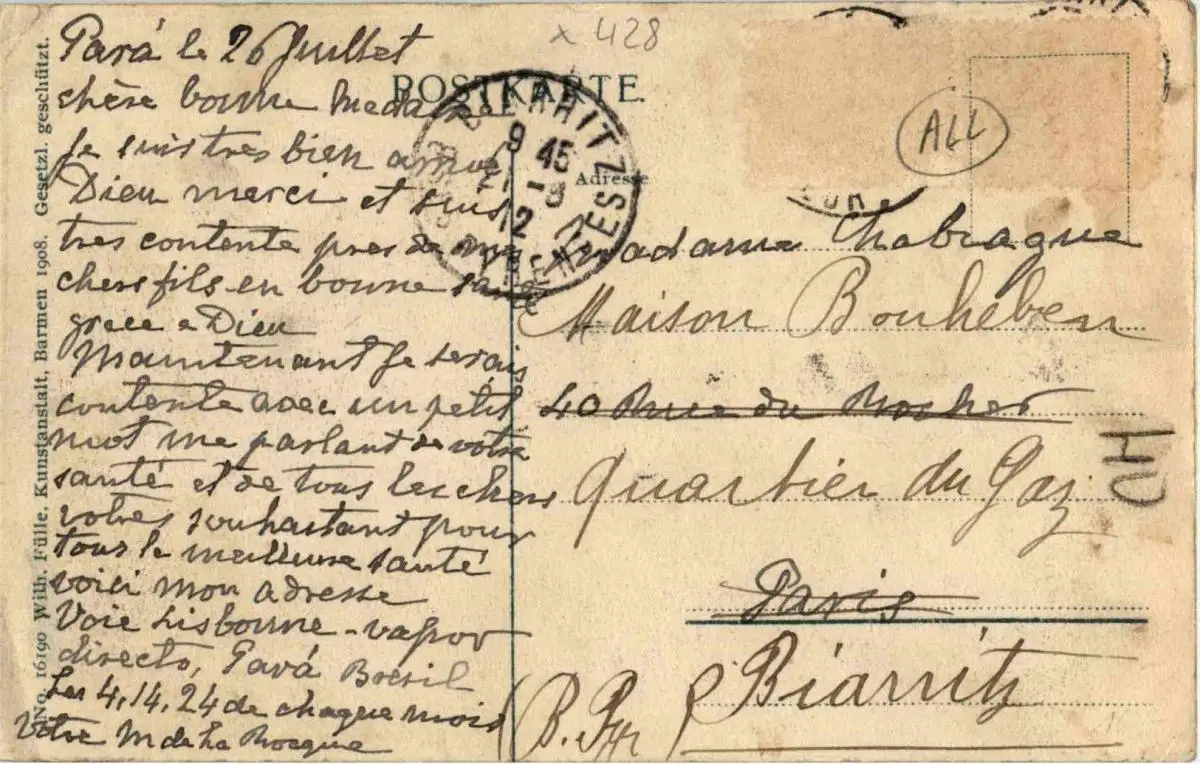 x 428
POSTKARTE.
Adresse
ALL
BIARRITZ
9 45
PYRENEES
Pará le 26 Juillet
chère bonne Madame
Je suis tres bien
Dieu merci et suis
tres contente pres de
chers fils en bonne santé
grace a Dieu
Maintenant Je serais
contente avec un petit
mot me parlant de votre
santé et de tous les chers
votres souhaitant pour
tous la meilleure santé
voici mon adresse
Voie Lisbonne - vapor
directo, Pará Bresil
Les 4, 14, 24 de chaque mois
Votre M de La Rocque
Madame Chabrague
Maison Bonheben
40 Rue du Rocher
Quartier du Gaz
Paris
Biarritz
B. Pyr
CH
No. 16190 Wilh. Fülle, Kunstanstalt, Barmen 1908. Gesetzl. geschützt.